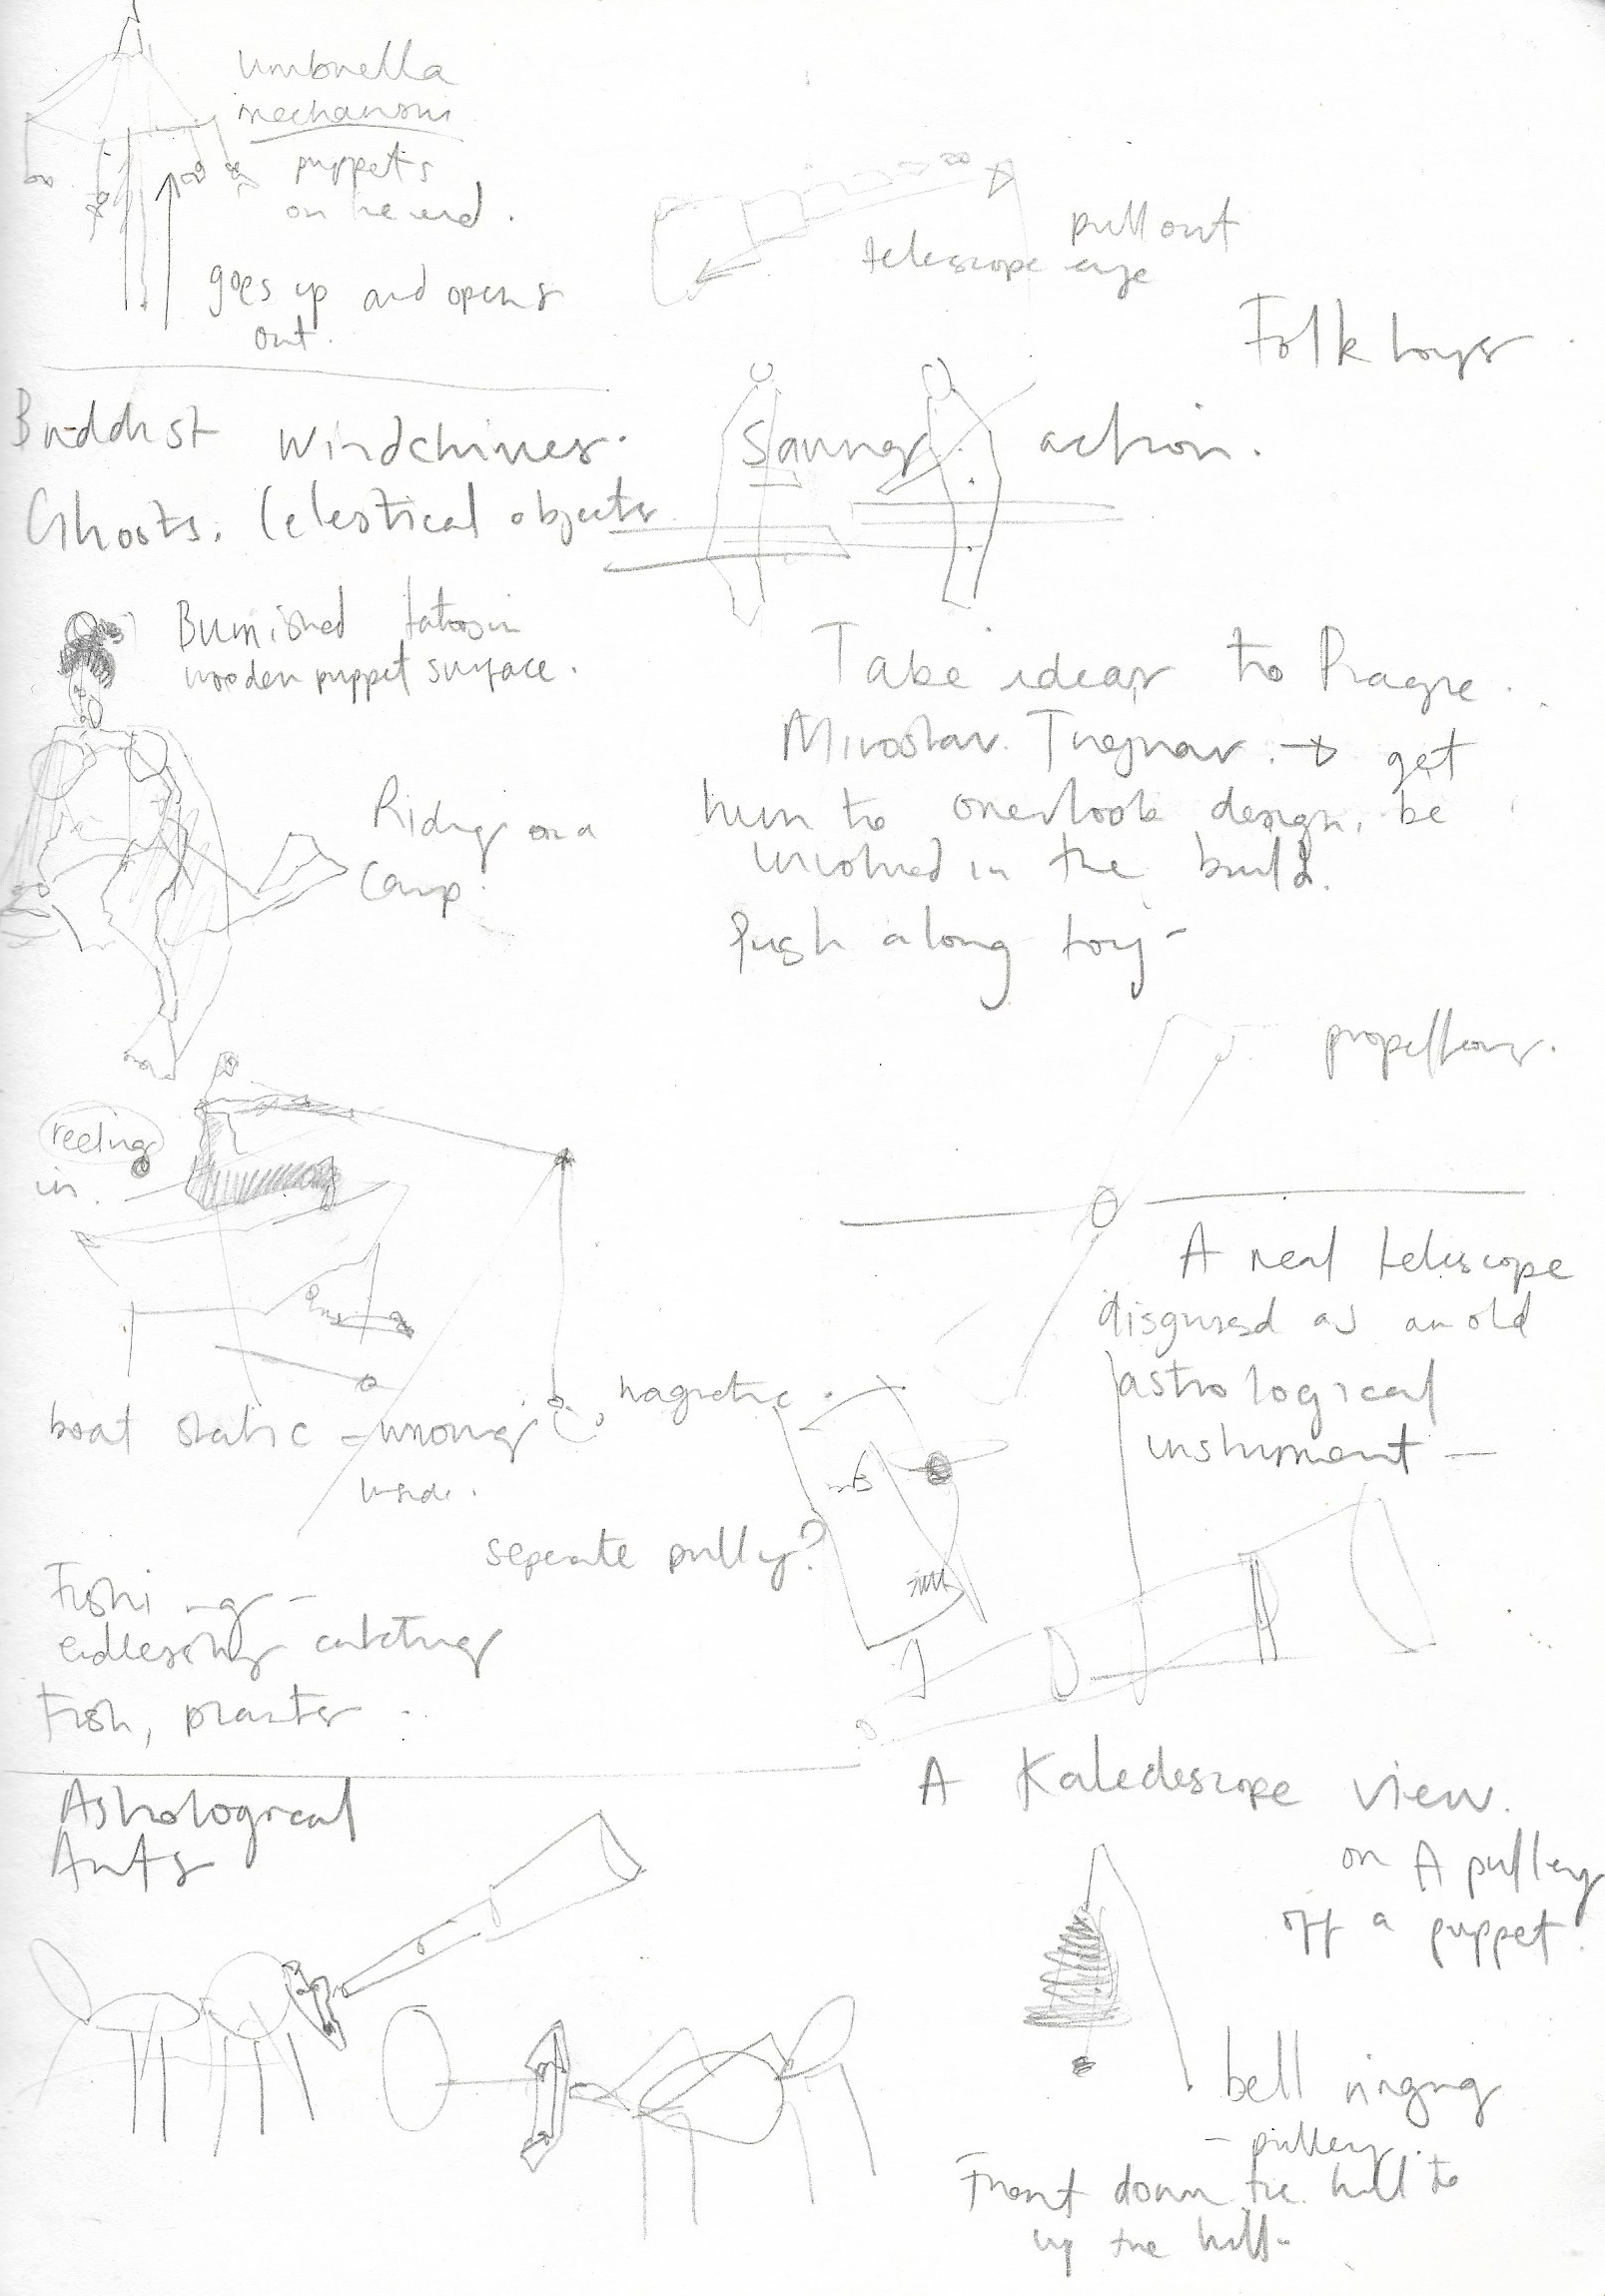 umbrella
mechanism
puppets
on the end.
goes up and opens
out.
pull out
telescope eye
Folk toys
Buddhist windchimes.
Ghosts. Celestical objects
action.
Burnished
wooden puppet surface.
Riding on a
Take ideas to Prague.
Miroslav. Trejnar. → get
him to overlook design, be
involved in the build.
Push along toy -
propellors.
reeling
in.
A real telescope
disguised as an old
astrological
instrument —
magnetic.
boat static -
inside.
seperate pully?
Fishing -
endlessly catching
Fish, planets -
Astrological
Ants
A Kaledescope view.
on A pulley
off a puppet.
bell ringing
- pulley.
Front down the hill to
up the hill-